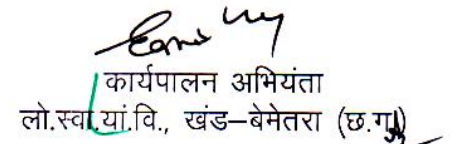 कार्यपालन अभियंता
लो.स्वा.यां.वि., खंड–बेमेतरा (छ.ग.)